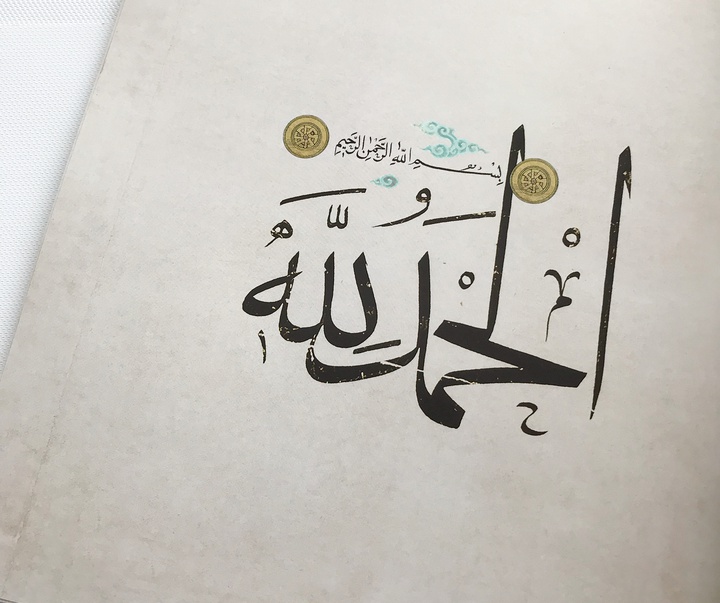 بِسْمِ اللّٰهِ الرَّحْمٰنِ الرَّحِيْمِ
الْحَمْدُ لِلّٰهِ